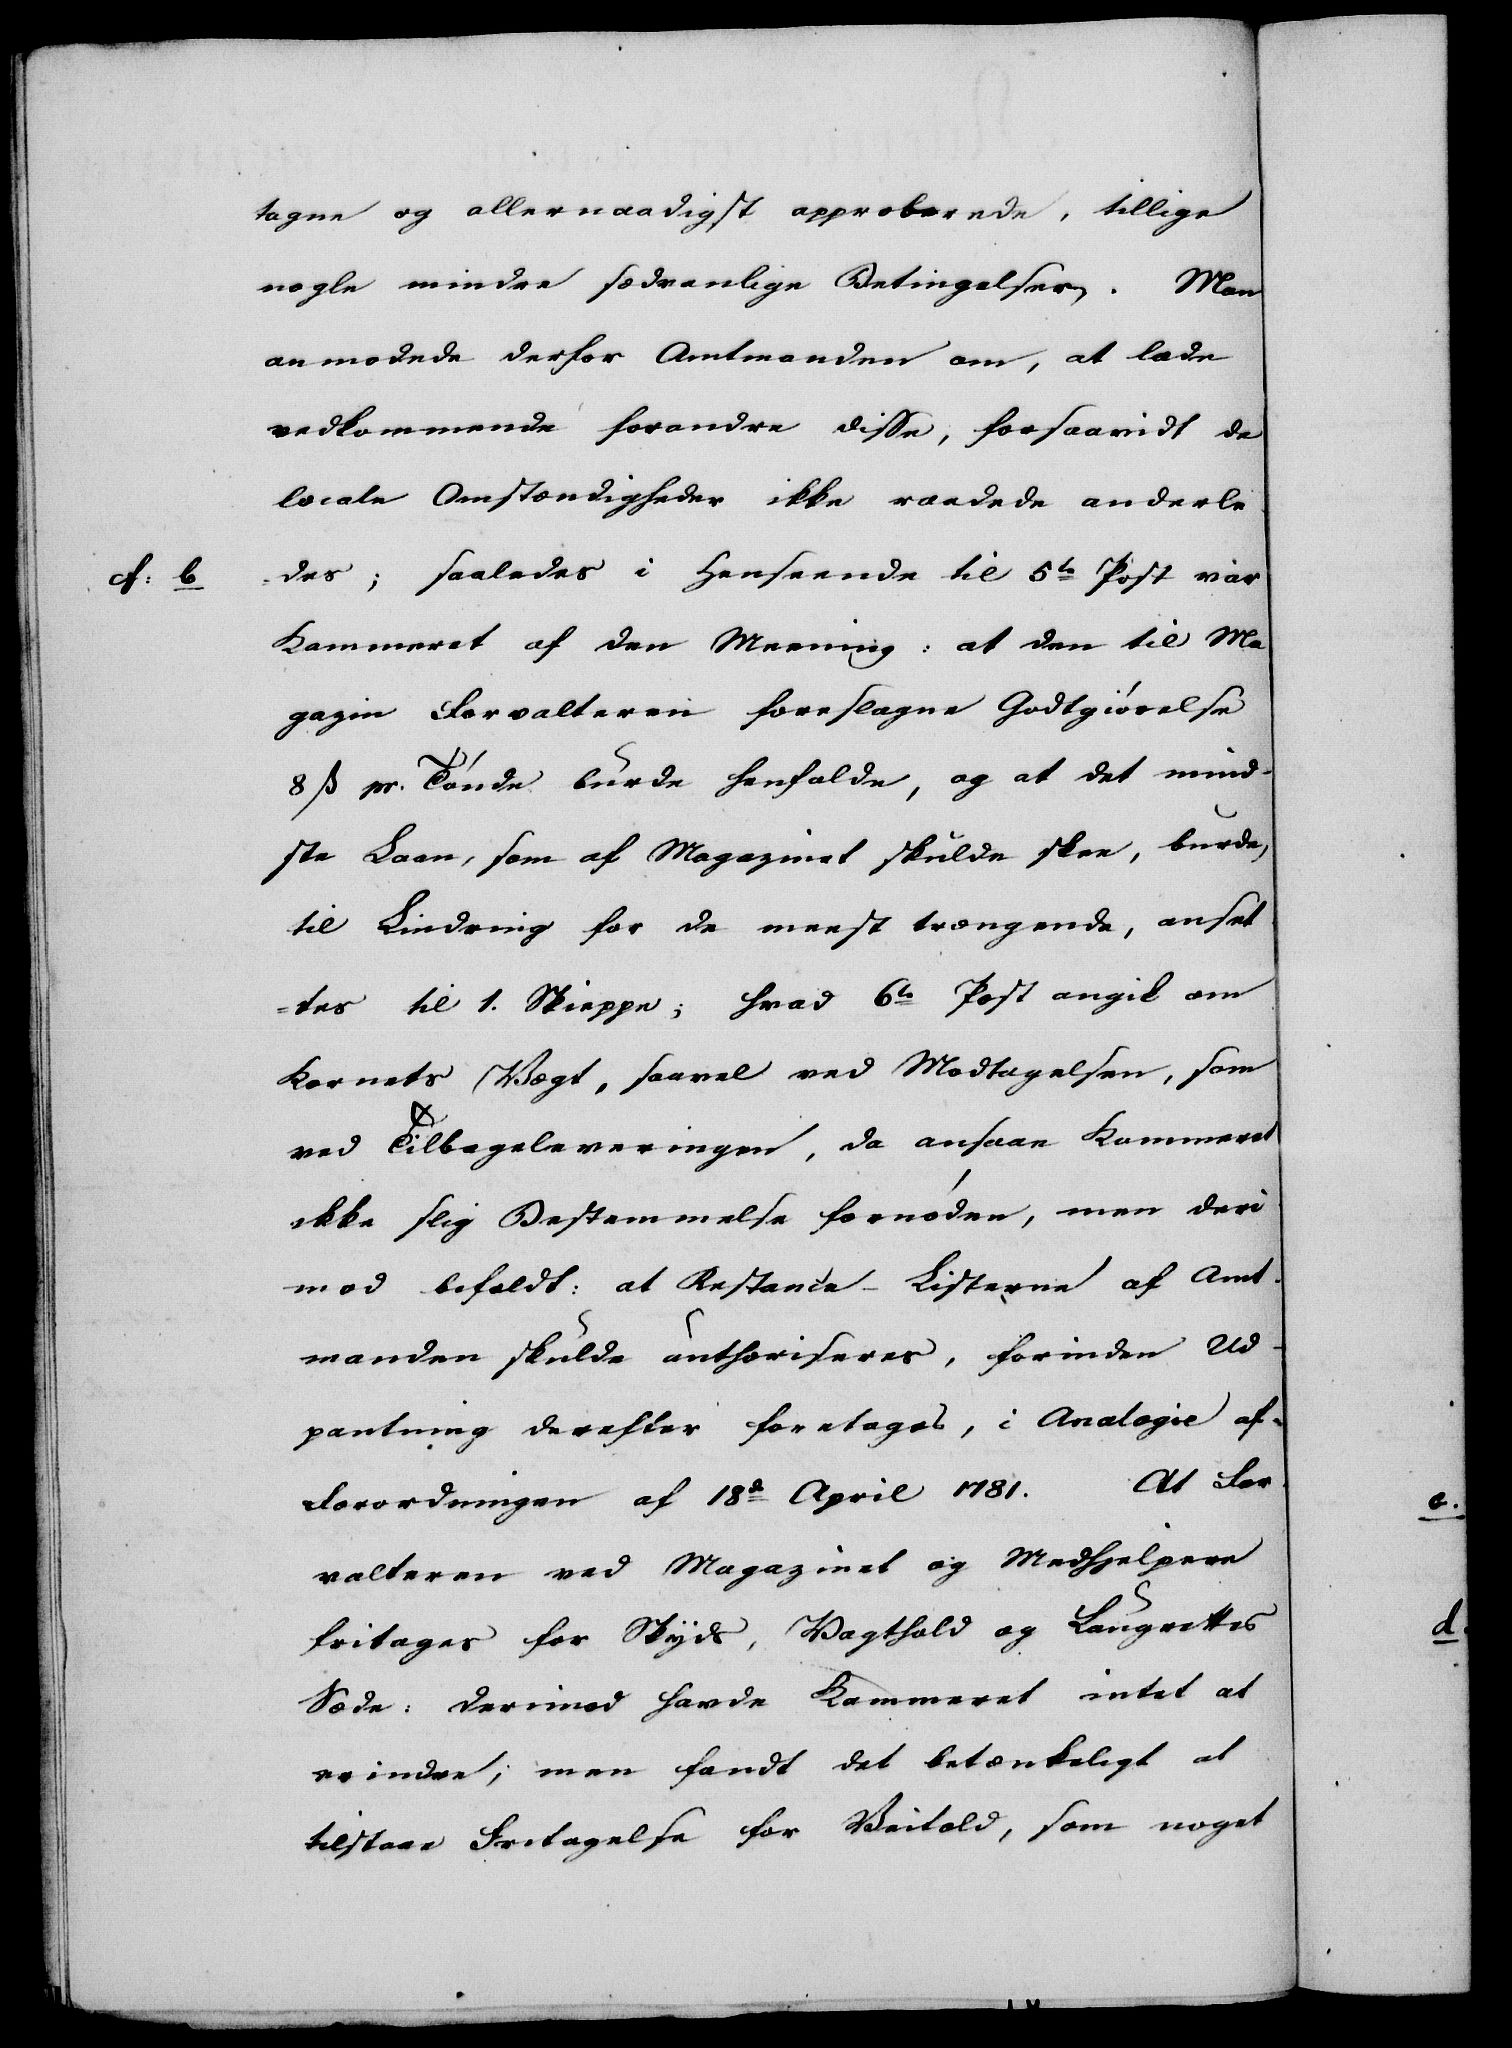 tagne og allernaadigst approberede, tillige
nogle mindre sædvanlige Betingelser. Man
anmodede derfor Amtmanden om, at lade
vedkommende forandre disse, forsaavidt de
locale Omstændigheder ikke raadede anderle
cf: b
-des; saaledes i Henseende til 5te Post var
Kammeret af den Meening: at den til Ma
gazin Forvalteren foreslagne Godtgiörelse
8 ß pr. Tönde burde henfalde, og at det mind-
ste Laan, som af Magazinet skulde skee, burde,
til Lindring for de meest trængende, anset
=tes til 1. Skieppe; hvad 6te Post angik om
Kornets Vægt, saavel ved Modtagelsen, som
ved Tilbageleveringen, da ansaae Kammeret
ikke slig Bestemmelse fornöden, men deri
mod befaldt: at Restance-Listerne af Amt-
manden skulde authoriseres, forinden Ud-
pantning derefter foretages, i Analogie af
Forordningen af 18de April 1781. At For
valteren ved Magazinet og Medhjelpere
fritages for Skyds, Vagthold og Laugrettes
Sæde: derimod havde Kammeret intet at
erindre; men fandt det betænkeligt at
tilstaae Fritagelse for Veitold, som noget
c.
d.